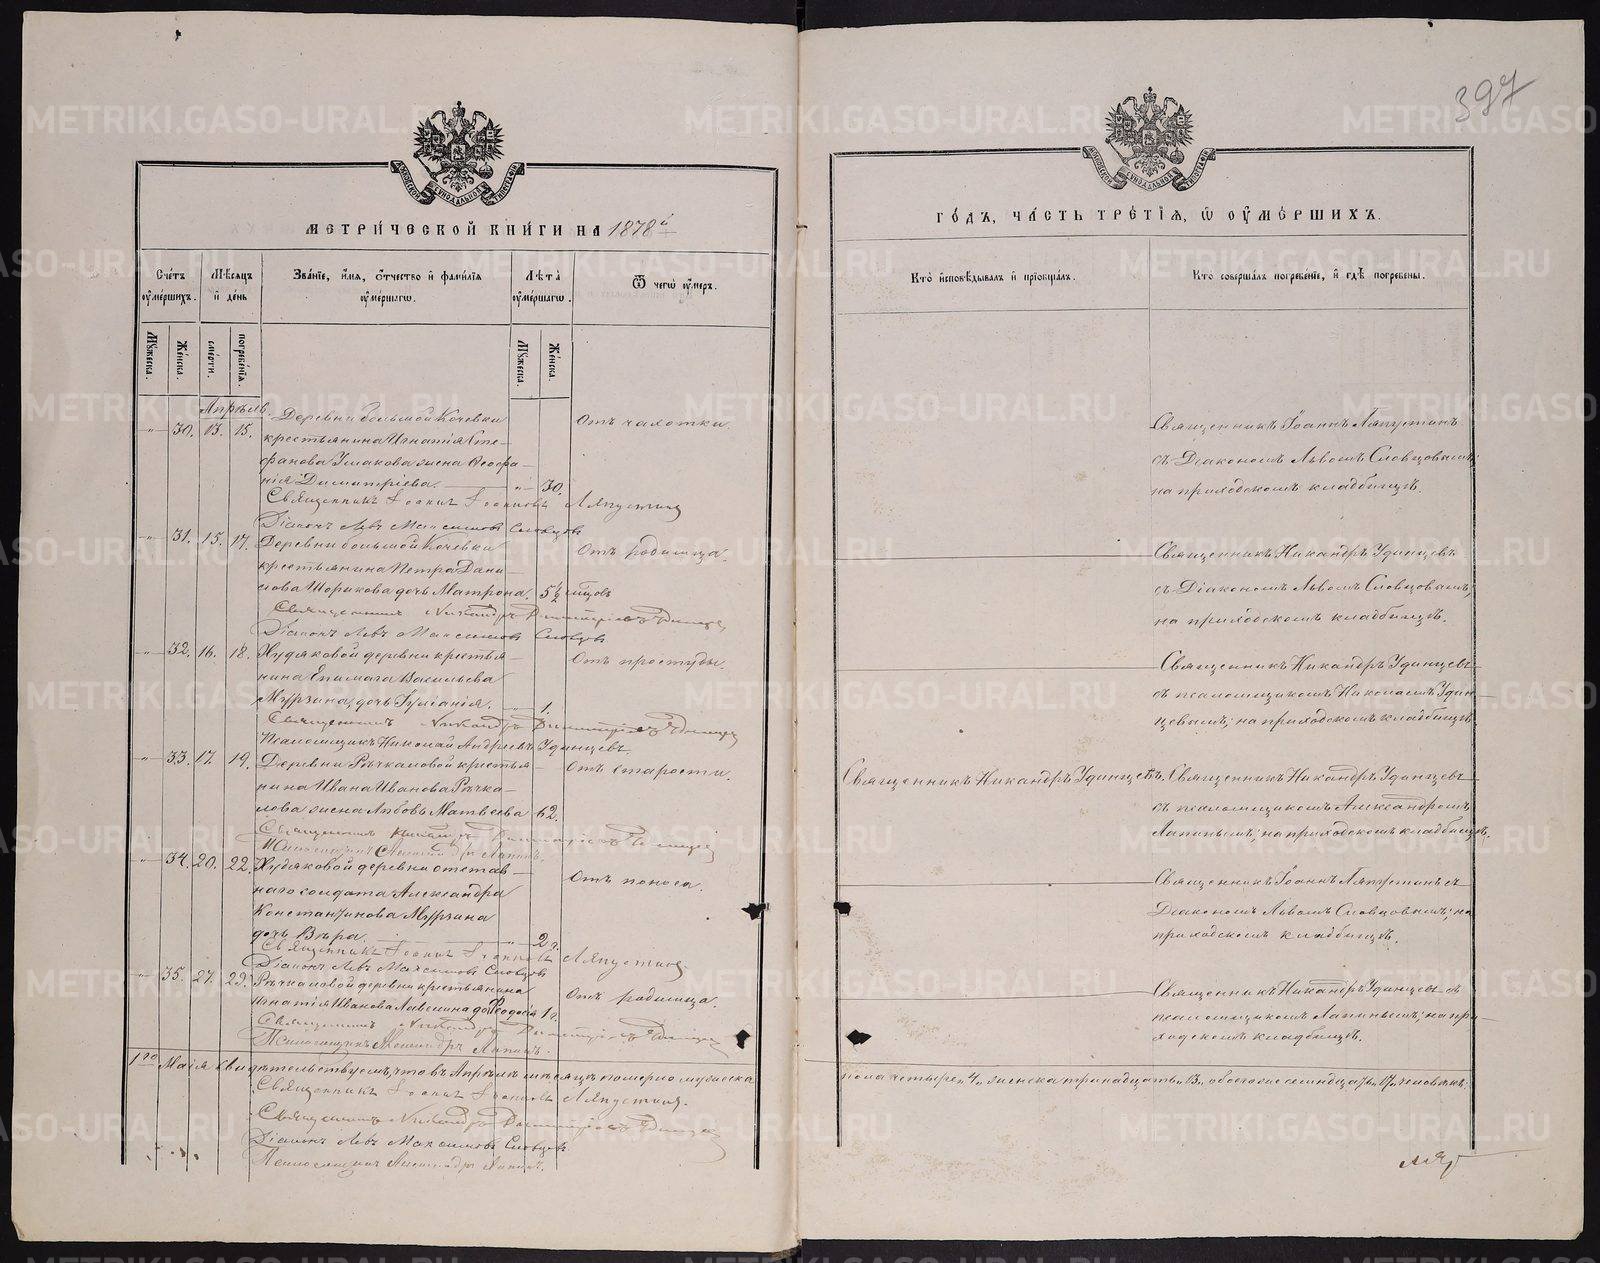 397
МЕТРИЧЕСКОЙ КНИГИ НА 1878й
ГОДЪ, ЧАСТЬ ТРЕТІЯ, Ѿ ОУМЕРШИХЪ.
Счетъ оумершихъ.
Мѣсяцъ и день
Званіе, имя, отчество и фамилія оумершагѡ.
Лѣта оумершагѡ.
Ѿ чегѡ оумеръ.
Кто исповѣдывалъ и пріобщалъ.
Кто совершалъ погребеніе, и гдѣ погребены.
Мꙋжеска.
Женска.
смерти.
погребенія.
Мꙋжеска.
Женска.
Апрѣль.
30. 13. 15. Деревни большой Кочевки
крестьянина Игнатія Сте-
фанова Ушакова жена Феофа-
нія Димитріева. 30.
Отъ чахотки.
Священникъ Іоаннъ Ляпустинъ
съ Діакономъ Львомъ Словцовымъ;
на приходскомъ кладбищѣ.
Священникъ Іоаннъ Іоанновъ Ляпустинъ
Діаконъ Левъ Максимовъ Словцовъ
31. 15. 17. Деревни большой Кочевки
крестьянина Петра Дани-
лова Шорикова дочь Матрона. 5 1/2 мѣцовъ
Отъ родимца.
Священникъ Никандръ Удинцевъ
съ Діакономъ Львомъ Словцовымъ;
на приходскомъ кладбищѣ.
Священникъ Никандръ Димитріевъ Удинцевъ
Діаконъ Левъ Максимовъ Словцовъ
32. 16. 18. Худяковой деревни крестья-
нина Епимаха Васильева
Мурзина, дочь Іуліанія. 1.
Отъ простуды.
Священникъ Никандръ Удинцевъ
съ псаломщикомъ Николаемъ Удин-
цевымъ; на приходскомъ кладбищѣ.
Священникъ Никандръ Димитріевъ Удинцевъ
Псаломщикъ Николай Андреевъ Удинцевъ.
33. 17. 19. Деревни Рѣчкаловой крестья-
нина Ивана Иванова Рѣчка-
лова жена Любовь Матвѣева 62.
Отъ старости.
Священникъ Никандръ Удинцевъ.
Священникъ Никандръ Удинцевъ
съ псаломщикомъ Александромъ
Лапинымъ; на приходскомъ кладбищѣ.
Священникъ Никандръ Димитріевъ Удинцевъ
Псаломщикъ Александръ Лапинъ.
34. 20. 22. Худяковой деревни отстав-
наго солдата Александра
Константинова Мурзина
дочь Вѣра. 2 г.
Отъ поноса.
Священникъ Іоаннъ Ляпустинъ съ
Діакономъ Львомъ Словцовымъ; на
приходскомъ кладбищѣ.
Священникъ Іоаннъ Іоанновъ Ляпустинъ
Діаконъ Левъ Максимовъ Словцовъ
35. 27. 29. Рѣчкаловой деревни крестьянина
Игнатія Иванова дочь Феодосія 1 г.
Отъ родимца.
Священникъ Никандръ Удинцевъ съ
псаломщикомъ Лапинымъ; на при-
ходскомъ кладбищѣ.
Священникъ Никандръ Димитріевъ Удинцевъ
Псаломщикъ Александръ Лапинъ.
1го Маія свидѣтельствуемъ, что въ Апрѣлѣ мѣсяцѣ померло мужеска
пола четыре „4„ женска тринадцать „13„ обоегоже семнадцать „17„ человѣкъ.
Священникъ Іоаннъ Іоанновъ Ляпустинъ.
Священникъ Никандръ Димитріевъ Удинцевъ
Діаконъ Левъ Максимовъ Словцовъ
Псаломщикъ Александръ Лапинъ.
METRIKI.GASO-URAL.RU